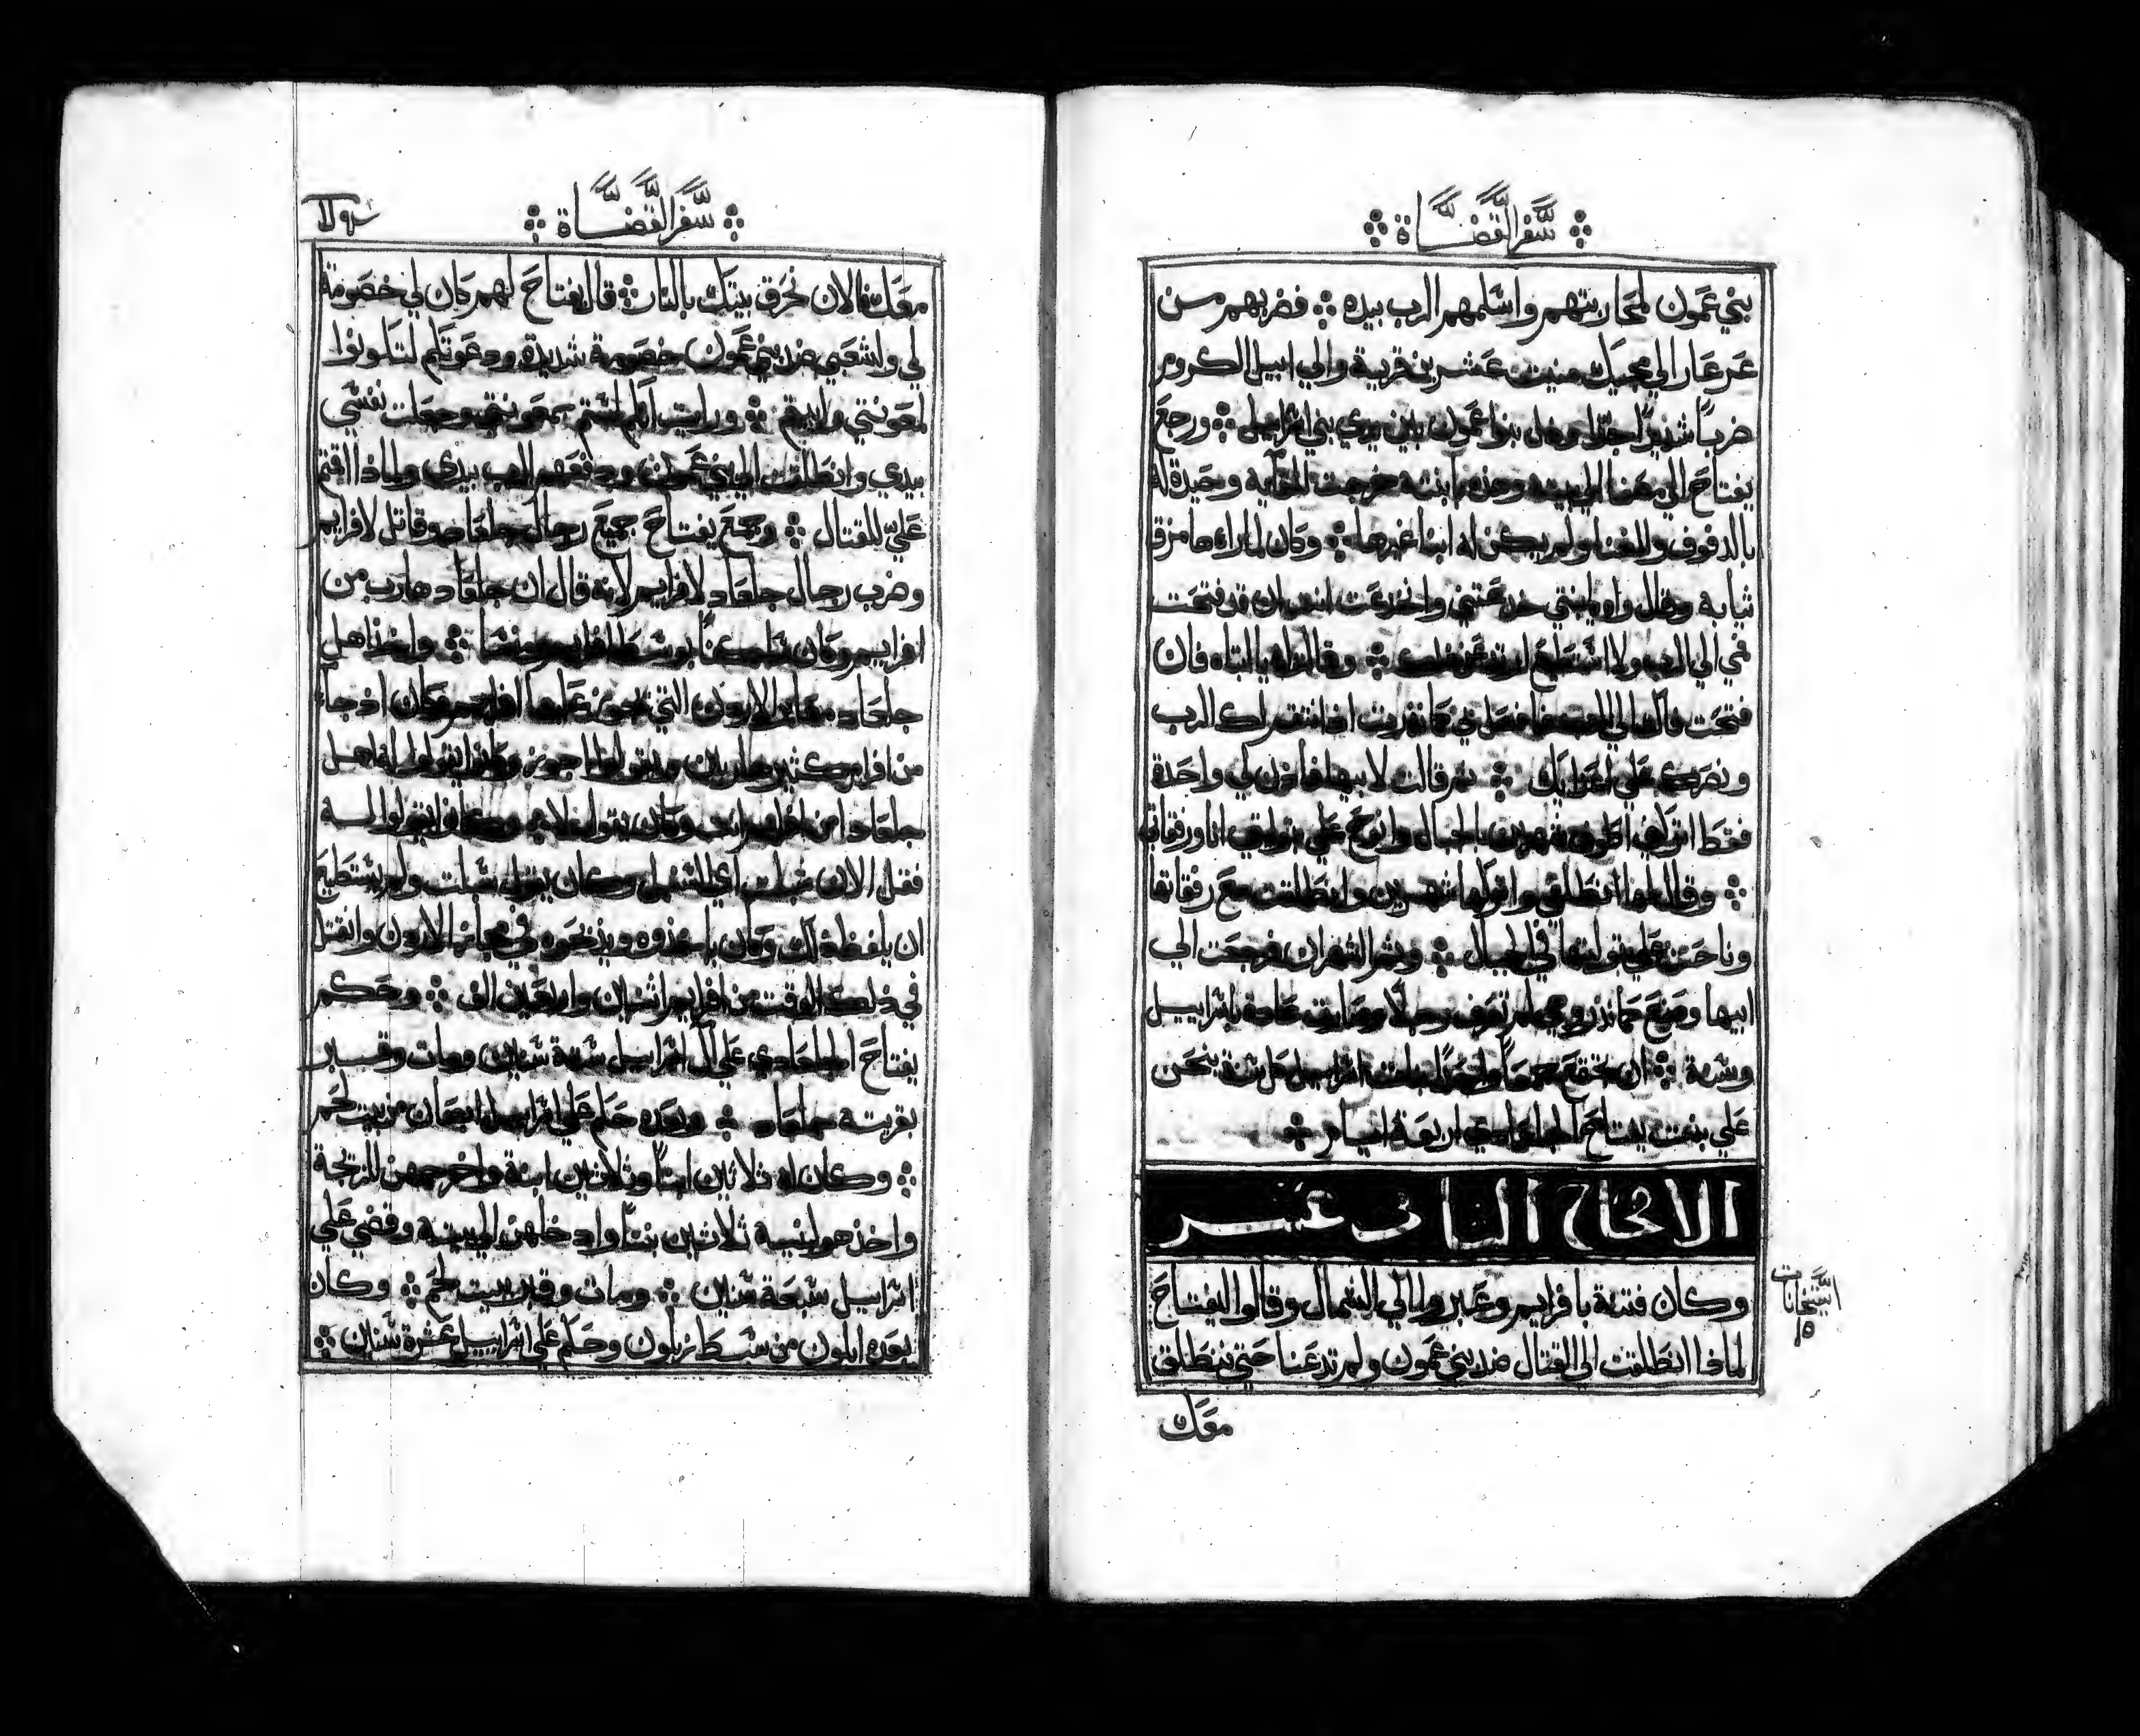 سفر القضاة
بني عمون لمحاربتهم واسلمهم الرب بيده ፨ فضربهم من
عرعار الي مجيك منيت عشرين قرية والي ابيل الكروم
ضرباً شديداً جدّا وذل بنوا عمون بين يدي بني اسراييل ፨ ورجع
يفتاح الي مصفا الي بيته وهذه ابنته خرجت للقايه وحيدة له
بالدفوف والغنا ولم يكن له ابنا غيرها ፨ وكان لما راها مزق
ثيابه وقال واه يا بنتي خدعتيني وانخدعت انتي لان قد فتحت
في الي الرب ولا استطيع ارتد عن ፨ وقالت له يا ابتاه فان
فتحت فاك الي الرب فافعل بي كما نذرت اذ انتقم لك الرب
ونصرك علي اعدايك ፨ ثم قالت لابيها فاذن لي واحدة
فقط اتركني اطوف شهرين بالجبال وانوح علي بتوليتي انا ورفقاتي
፨ وقال لها انطلقي واتركها شهرين وانطلقت مع رفقاتها
وناحت علي بتوليتها في الجبال ፨ وتم الشهران فرجعت الي
ابيها وصنع كما نذر وهي لم تعرف رجلاً وصارت عادة باسراييل
وسنة ፨ ان تجتمع جمعاً واحداً بنات اسراييل كل سنة ينحن
علي بنت يفتاح الجلعادي اربعة ايام ፨
الاصحاح الثاني عشر
وكان فتنة بافرايم وعبروا الي الشمال وقالوا ليفتاح
لماذا انطلقت الي القتال ضد بني عمون ولم تدعنا حتي ننطلق
معك
سفر القضاة
معك فالان نحرق بيتك بالنار ፨ قال يفتاح لهم كان لي خصومة
لي ولشعبي ضد بني عمون خصومة شديدة ودعوتكم لتكونوا
لمعونتي وابيتم ፨ ورايت انكم لستم بمعونتي وجعلت نفسي
بيدي وانطلقت الي بني عمون ودفعهم الرب بيدي ولماذا اقمتم
عليّ للقتال ፨ وجمع يفتاح جميع رجال جلعاد وقاتل لافرايم
وضرب رجال جلعاد لافرايم لانه قال ان جلعاد هارب من
افرايم وكان ساكناً بوسط افرايم ومنسا ፨ واخذ اهل
جلعاد معابر الاردن التي يجوز عليها افرايم وكان اذ جاء
من افرايم كثير هاربين ويقولوا اجوز وكانوا يقولوا له اهل
جلعاد امن افرايم انت وكان يقول لا وكانوا يقولوا له
فقل الان شبلت اي السنبل وكان يقول سبلت ولم يستطيع
ان يلفظ ذلك وكان ياخذوه ويذبحوه في معابر الاردن وانقتل
في ذلك الوقت من افرايم اثنين واربعين الف ፨ وحكم
يفتاح الجلعادي علي ال اسراييل ستة سنين ومات وقبر
بقريته جلعاد ፨ وبعده حكم علي اسراييل ابصان من بيت لحم
፨ وكان له ثلاثين ابناً وثلاثين ابنة واخرجهن للزيجة
واخذ هو لبنيه ثلاثين بنتاً وادخلهن الي بيته وقضي علي
اسراييل سبعة سنين ፨ ومات وقبر ببيت لحم ፨ وكان
بعده ايلون من سبط زبلون وحكم علي اسراييل عشرة سنين ፨